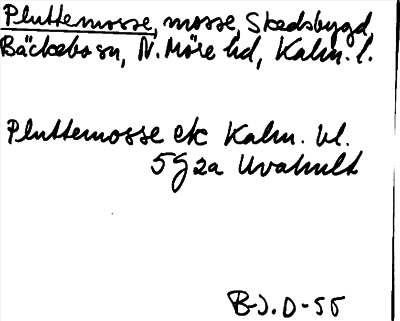 Pluttemosse, mosse, Skedsbygd,
Bäckebo sn, N. Möre hd, Kalm. l.
Pluttemosse ek Kalm. bl.
5G2a Uvahult
B-J.D-55